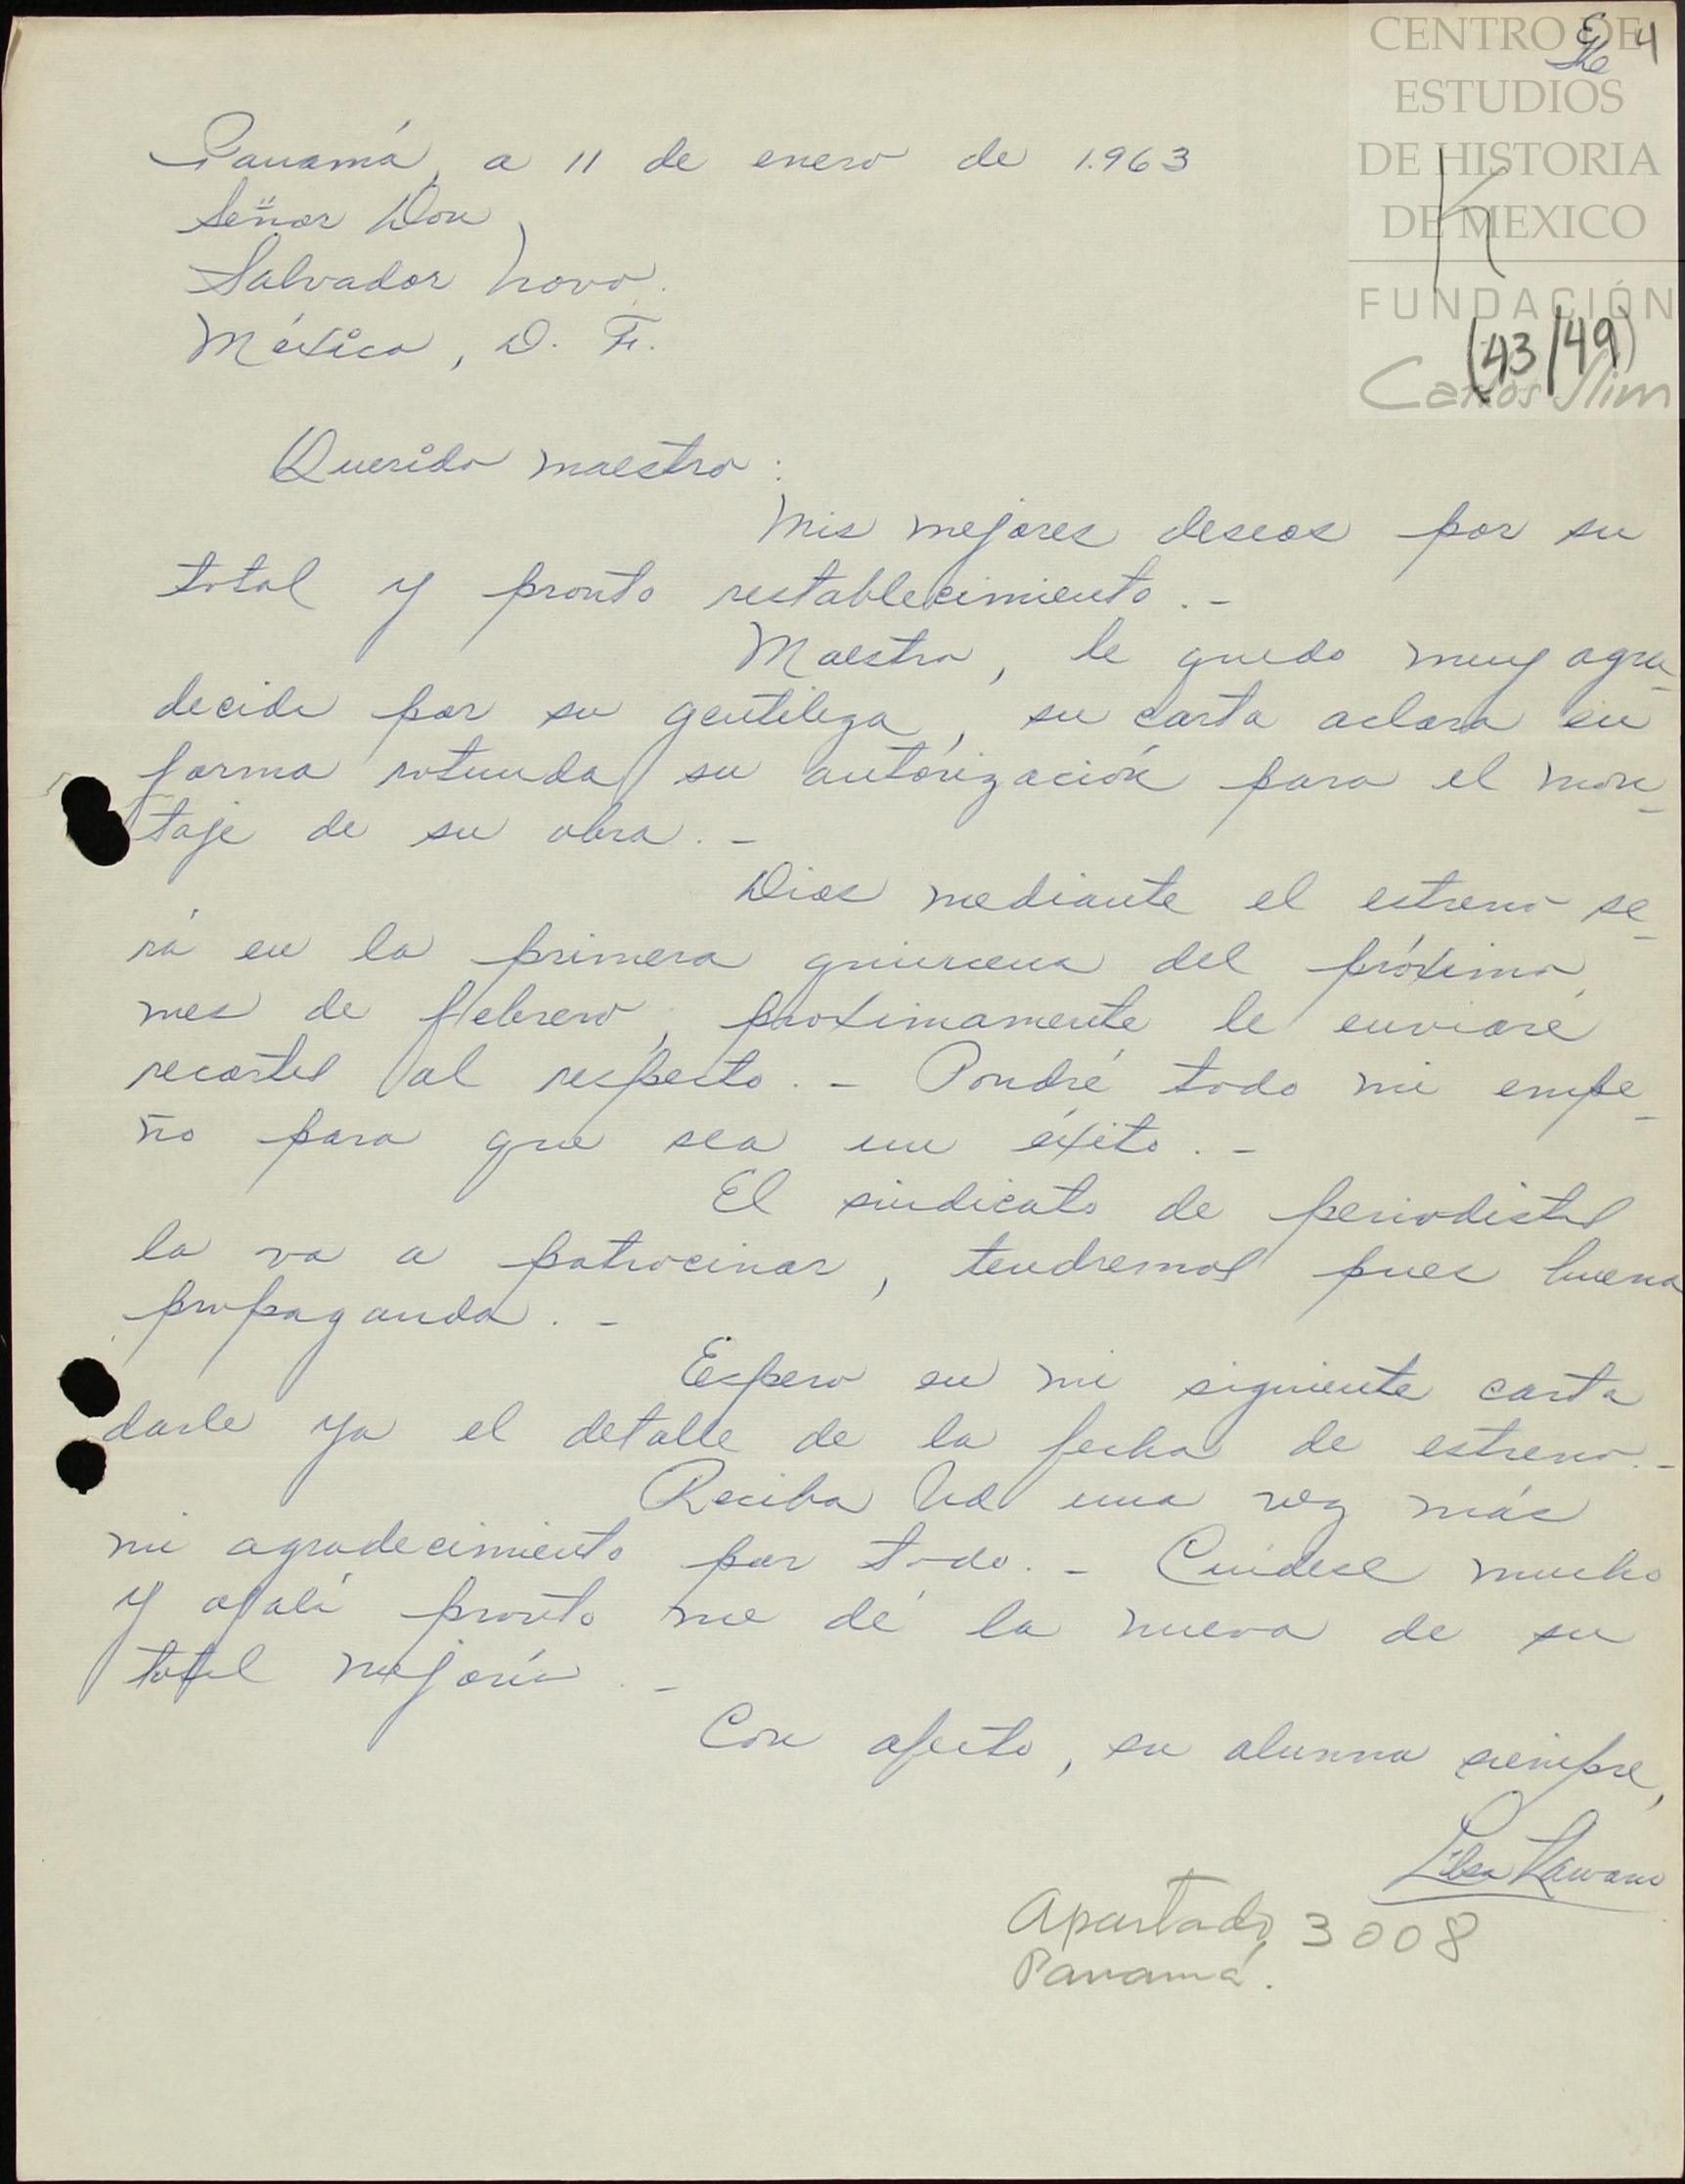 CENTRO DE
ESTUDIOS
DE HISTORIA
DE MEXICO
FUNDACIÓN
Carlos Slim
4
K
(43/49)
Panamá, a 11 de enero de 1.963
Señor Don
Salvador Novo.
México, D. F.
Querido maestro:
Mis mejores deseos por su
total y pronto restablecimiento.-
Maestro, le quedo muy agra-
decida por su gentileza, su carta aclara en
forma rotunda su autorización para el mon-
taje de su obra.-
Dios mediante el estreno se-
rá en la primera quincena del próximo
mes de febrero, proximamente le enviaré
recortes al respecto.- Pondré todo mi empe-
ño para que sea un éxito.-
El sindicato de periodistas
la va a patrocinar, tendremos pues buena
propaganda.-
Espero en mi siguiente carta
darle ya el detalle de la fecha de estreno.-
Reciba Ud una vez más
mi agradecimiento por todo.- Cuídese mucho
y ojalá pronto me dé la nueva de su
total mejoría.-
Con afecto, su alumna siempre,
Apartado 3008
Panamá.